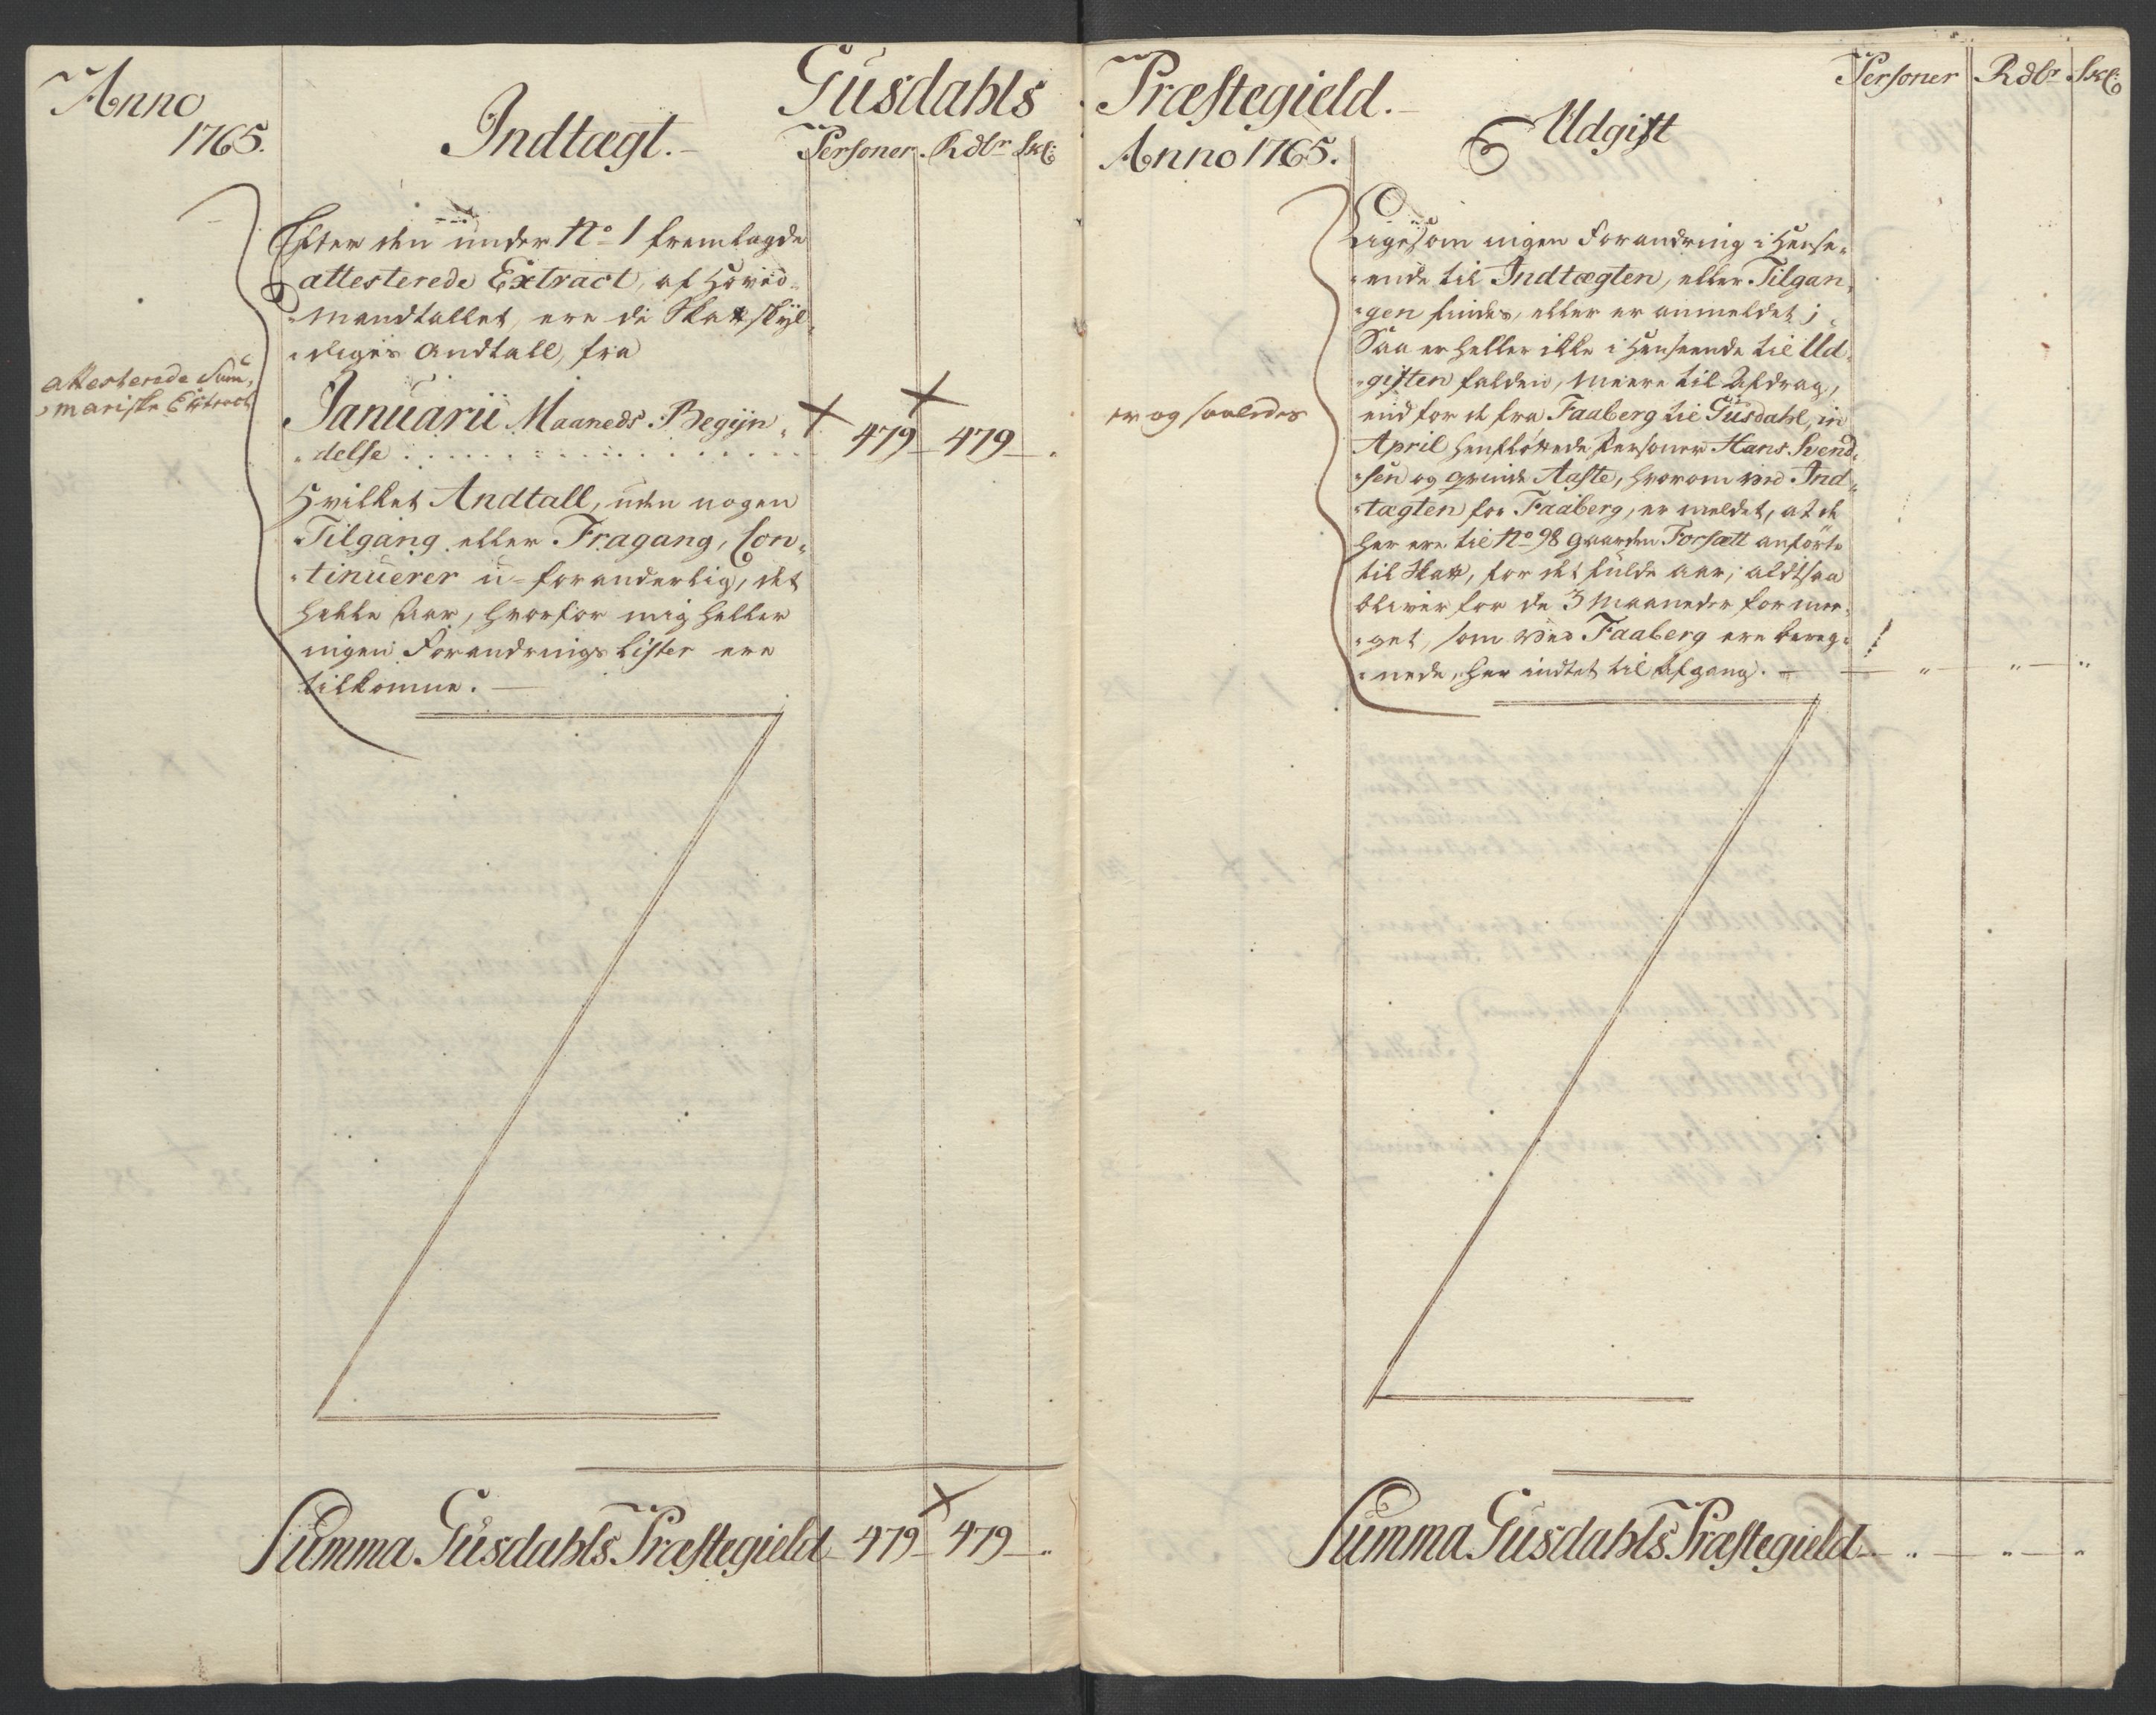 Anno
1765.
Gusdahls
Indtægt.
Personer. Rdlr Skl:
Efter den under No 1 fremlagde
attesterede Extract, af Hoved-
mandtallet, ere de Skattskyl-
diges Andtall, fra
attesterede Sum-
mariske Extract
Januarii Maaneds Begyn-
delse . . . . . 479 479 .
Hvilket Andtall, uden nogen
Tilgang eller Fragang, Con-
tinuerer u-foranderlig, det
heele Aar, hvorfor mig heller
ingen Forandrings Lister ere
tilkomne.
Summa Gusdahls Præstegield 479 479 "
Præstegield.
Anno 1765.
Udgift
Personer Rdlr Skl:
Ligesom ingen Forandring i Hense-
ende til Indtægten, eller Tilgan-
gen findes, eller er anmeldet;
Saa er heller ikke i Henseende til Ud-
giften falden, meere til Afdrag,
er og saaledes
end for de fra Faaberg til Gusdahl, in
April henfløttede Personer Hans Svend-
sen og qvinde Aaste, hvorom ved Ind-
tægten for Faaberg, er meldet, at de
her ere til No 98 Gaarden Forsætt anførte
til Skatt, for det fulde Aar; altsaa
bliver for de 3 Maaneder for me-
get, som ved Faaberg ere bereg-
nede, her indtet til Afgang. " " "
Summa Gusdahls Præstegield " " "